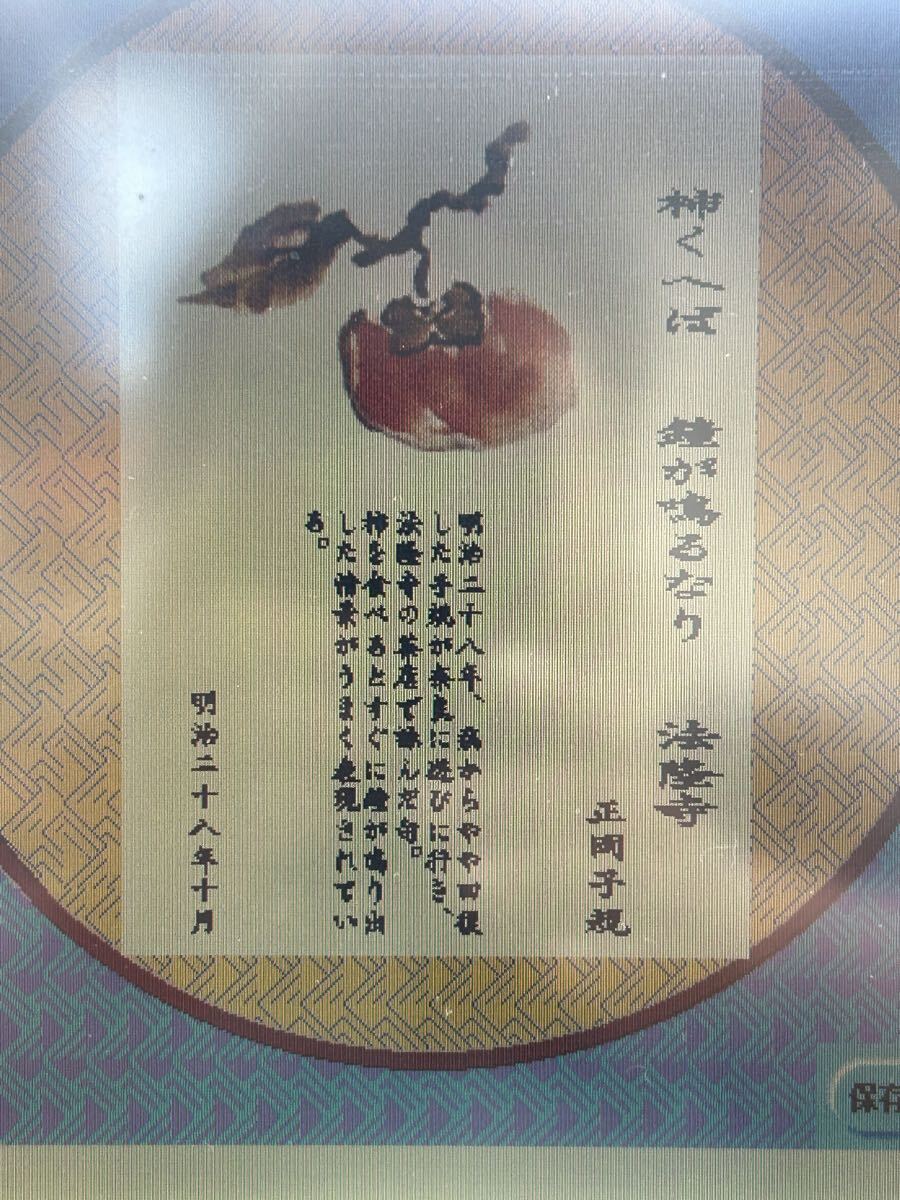 柿くへば 鐘が鳴るなり 法隆寺
正岡子規
明治二十八年、病からやや回復
した子規が奈良に遊びに行き、
法隆寺の茶店で詠んだ句。
柿を食べるとすぐに鐘が鳴り出
した情景がうまく表現されてい
る。
明治二十八年十月
保存